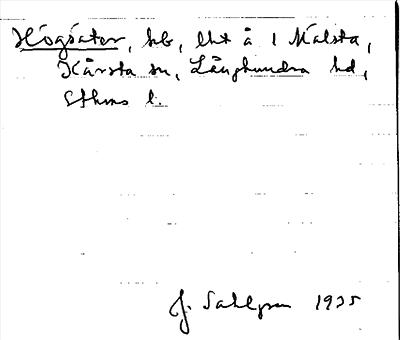 Högsäter, hb, lht å 1 Målsta,
Kårsta sn, Långhundra hd,
Sthms l.
J. Sahlgren 1935